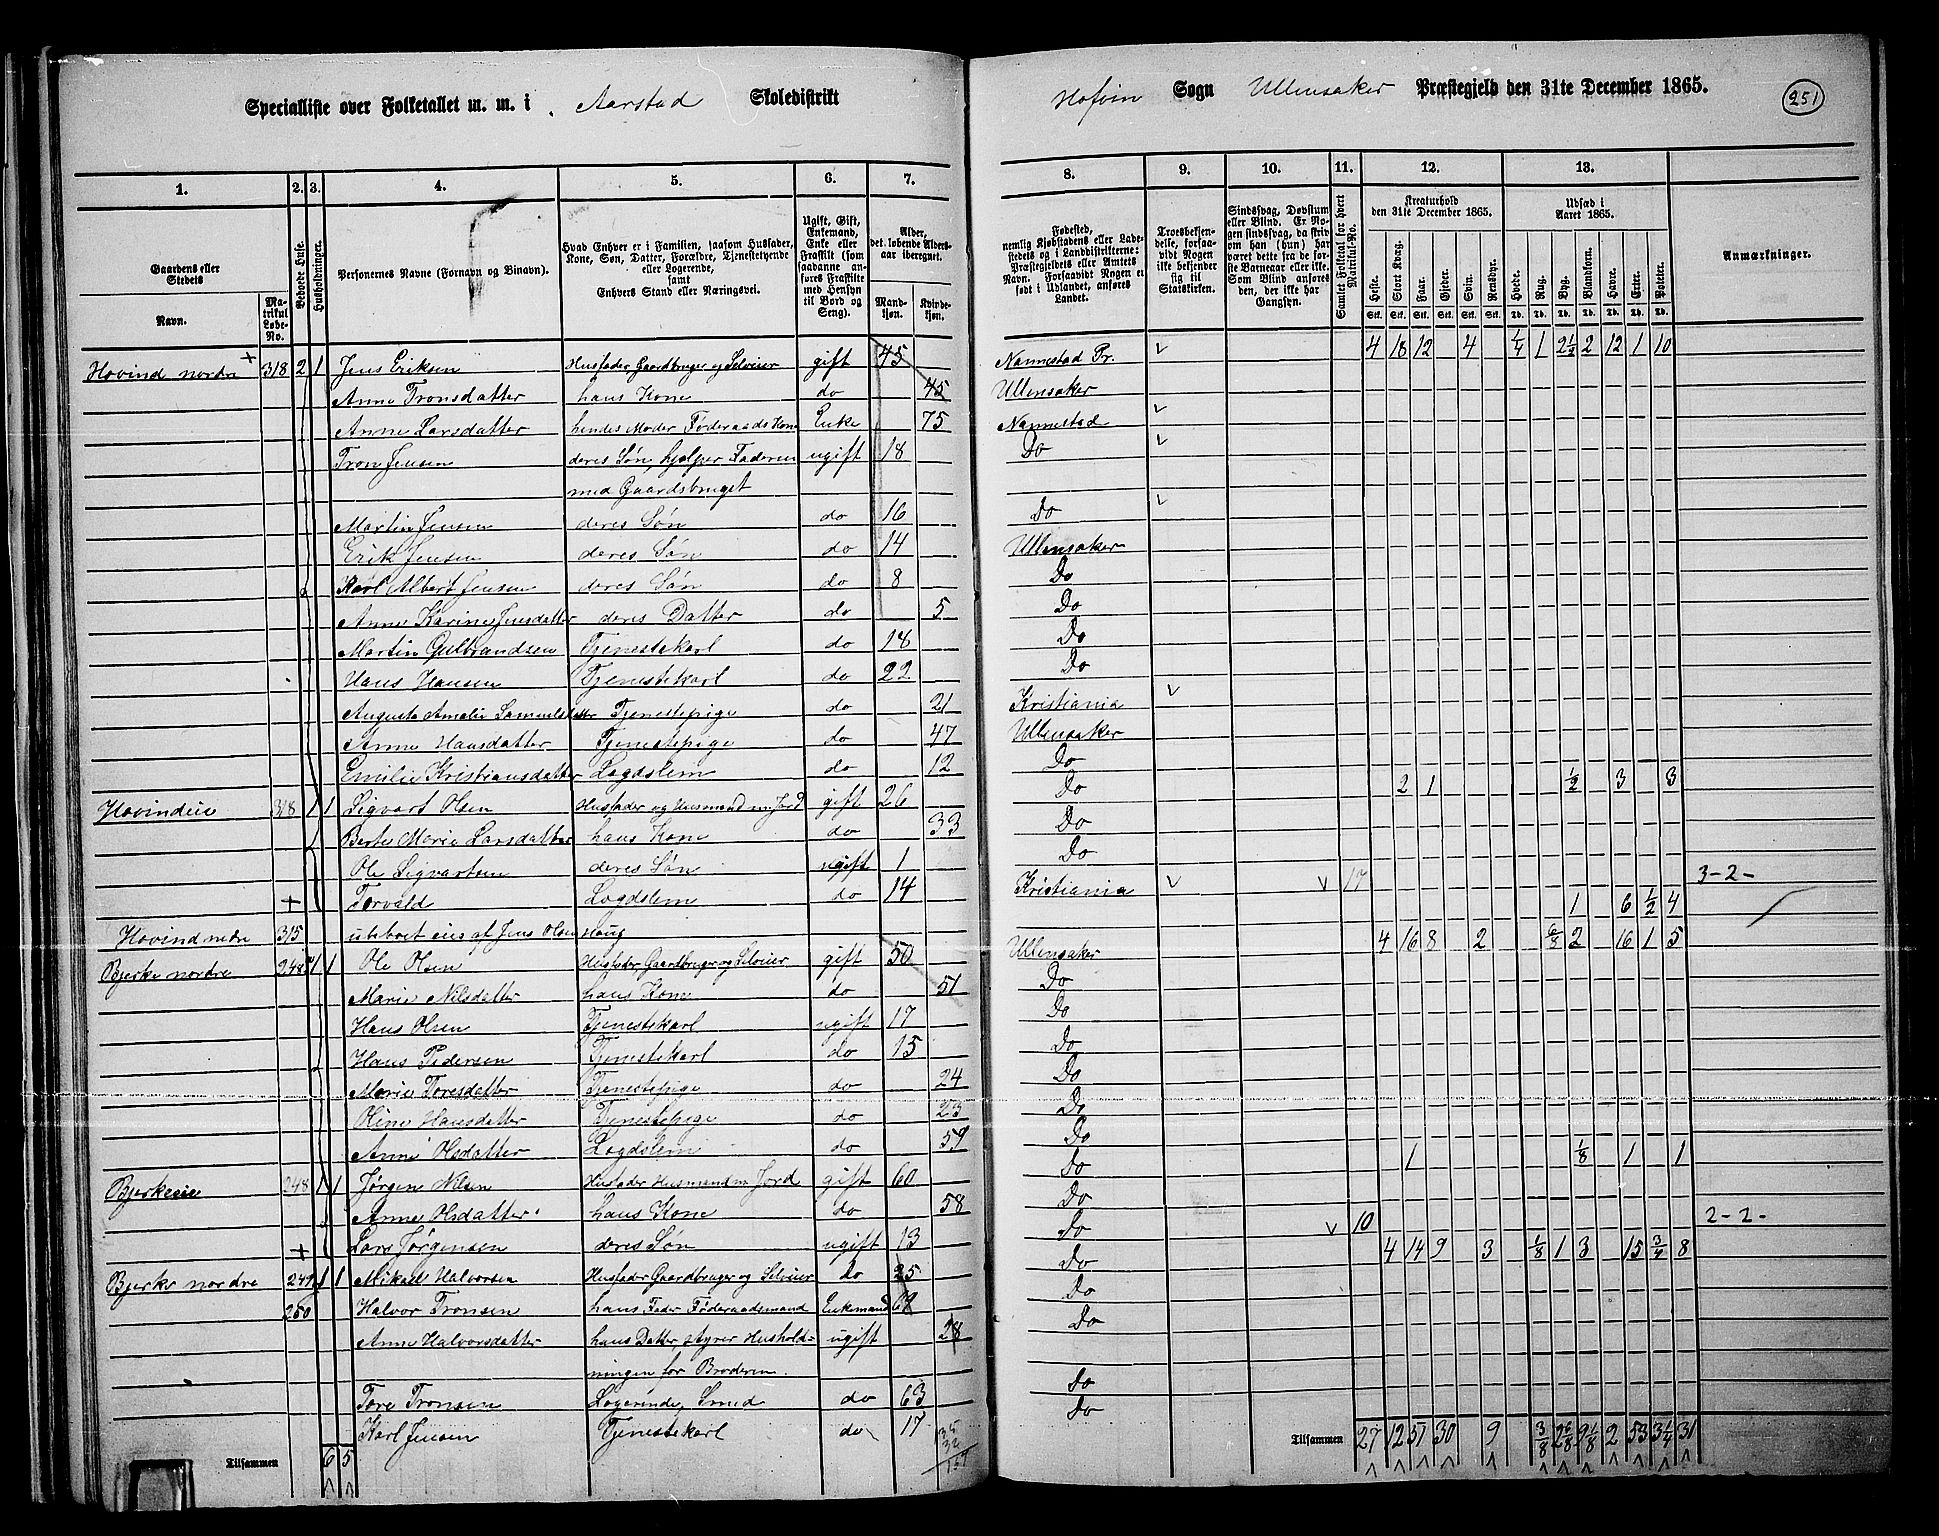 Specialliste over Folketallet m. m. i Aarstad Skoledistrikt
Hofvin Sogn Ullensaker Præstegjeld den 31te December 1865.
251
1. 2. 3. 4. 5. 6. 7.
8. 9. 10. 11. 12. 13.
Gaardens eller Stedets
Navn.
Matrikul Løbe-No.
Beboede Huse.
Husholdninger.
Personernes Navne (Fornavn og Binavn).
Hvad Enhver er i Familien, saasom Husfader, Kone, Søn, Datter, Forældre, Tjenestetyende eller Logerende, samt Enhvers Stand eller Næringsvei.
Ugift, Gift, Enkemand, Enke eller Fraskilt (som saadanne anføres Fraskilte med Hensyn til Bord og Seng).
Alder, det løbende Aldersaar iberegnet.
Mandkjøn. Kvindekjøn.
Fødested, nemlig Kjøbstadens eller Ladestedets og i Landdistrikterne: Præstegjeldets eller Amtets Navn. Forsaavidt Nogen er født i Udlandet, anføres Landet.
Troesbekjendelse, forsaavidt Nogen ikke bekjender sig til Statskirken.
Sindssvag, Døvstum eller Blind. Er Nogen sindssvag, da skriv om han (hun) har været dette fra de første Barneaar eller ikke. Som Blind anføres den, der ikke har Gangsyn.
Samlet Folketal for hvert Matrikul-No.
Kreaturhold den 31te December 1865.
Heste. Stort Kvæg. Faar. Gjeder. Svin. Rensdyr.
Udsæd i Aaret 1865.
Hvede. Rug. Byg. Blandkorn. Havre. Erter. Poteter.
Anmærkninger.
Hovind nordre 318 2 1 Jens Eriksen Husfader, Gaardbruger og Selveier gift 45 Nannestad Pr. 4 18 12 4 1/4 1 2 1/2 2 12 1 10
Anne Tronsdatter hans Kone do 45 Ullensaker
Anne Larsdatter hendes Moder Føderaads Kone Enke 75 Nannestad
Tron Jensen deres Søn, hjelper Faderen ugift 18 Do
med Gaardsbruget
Martin Jensen deres Søn do 16 Do
Erik Jensen deres Søn do 14 Ullensaker
Karl Albert Jensen deres Søn do 8 Do
Anne Karine Jensdatter deres Datter do 5 Do
Martin Gulbrandsen Tjenestekarl do 18 Do
Hans Hansen Tjenestekarl do 22 Do
Augusta Amalie Samuelsdatter Tjenestepige do 21 Kristiania
Anne Hansdatter Tjenestepige do 47 Ullensaker
Emilie Kristiansdatter Lægdslem do 12 Do
Hovindeie 318 1 1 Sigvart Olsen Husfader og Husmand m. Jord gift 26 Do 2 1 1/2 3 3
Berte Marie Larsdatter hans Kone do 33 Do
Ole Sigvartsen deres Søn ugift 1 Do
Torvald Lægdslem do 14 Kristiania 17 3-2-
Hovind nedre 315 ubeboet eies af Jens Olsen Haug 1 6 1/2 4
Bjerke nordre 248 1 1 Ole Olsen Husfader, Gaardbruger og Selveier gift 50 Ullensaker 4 16 8 2 6/8 2 16 1 5
Marie Nilsdatter hans Kone do 51 Do
Hans Olsen Tjenestekarl ugift 17 Do
Hans Pedersen Tjenestekarl do 15 Do
Marie Toresdatter Tjenestepige do 24 Do
Oline Hansdatter Tjenestepige do 23 Do
Anne Olsdatter Lægdslem do 59 Do
Bjerkeeie 248 1 1 Jørgen Nilsen Husfader Husmand m Jord gift 60 Do 1 1/8 1 1
Anne Olsdatter hans Kone do 58 Do
Lars Jørgensen deres Søn ugift 13 Do 10 2-2-
Bjerke nordre 249 1 1 Mikael Halvorsen Husfader Gaardbruger og Selveier do 25 Do 4 14 9 3 1/8 1 3 15 3/4 8
250 Halvor Tronsen hans Fader Føderaadsmand Enkemand 69 Do
Anne Halvorsdatter hans Datter, styrer Hushold- ugift 28 Do
ningen for Broderen.
Tore Tronsen Logerende, Smed do 63 Do
Karl Jensen Tjenestekarl do 17 Do
Tilsammen 6 5
Tilsammen 27 12 51 30 9 3/8 2 6/8 9 1/8 2 53 3 1/4 31